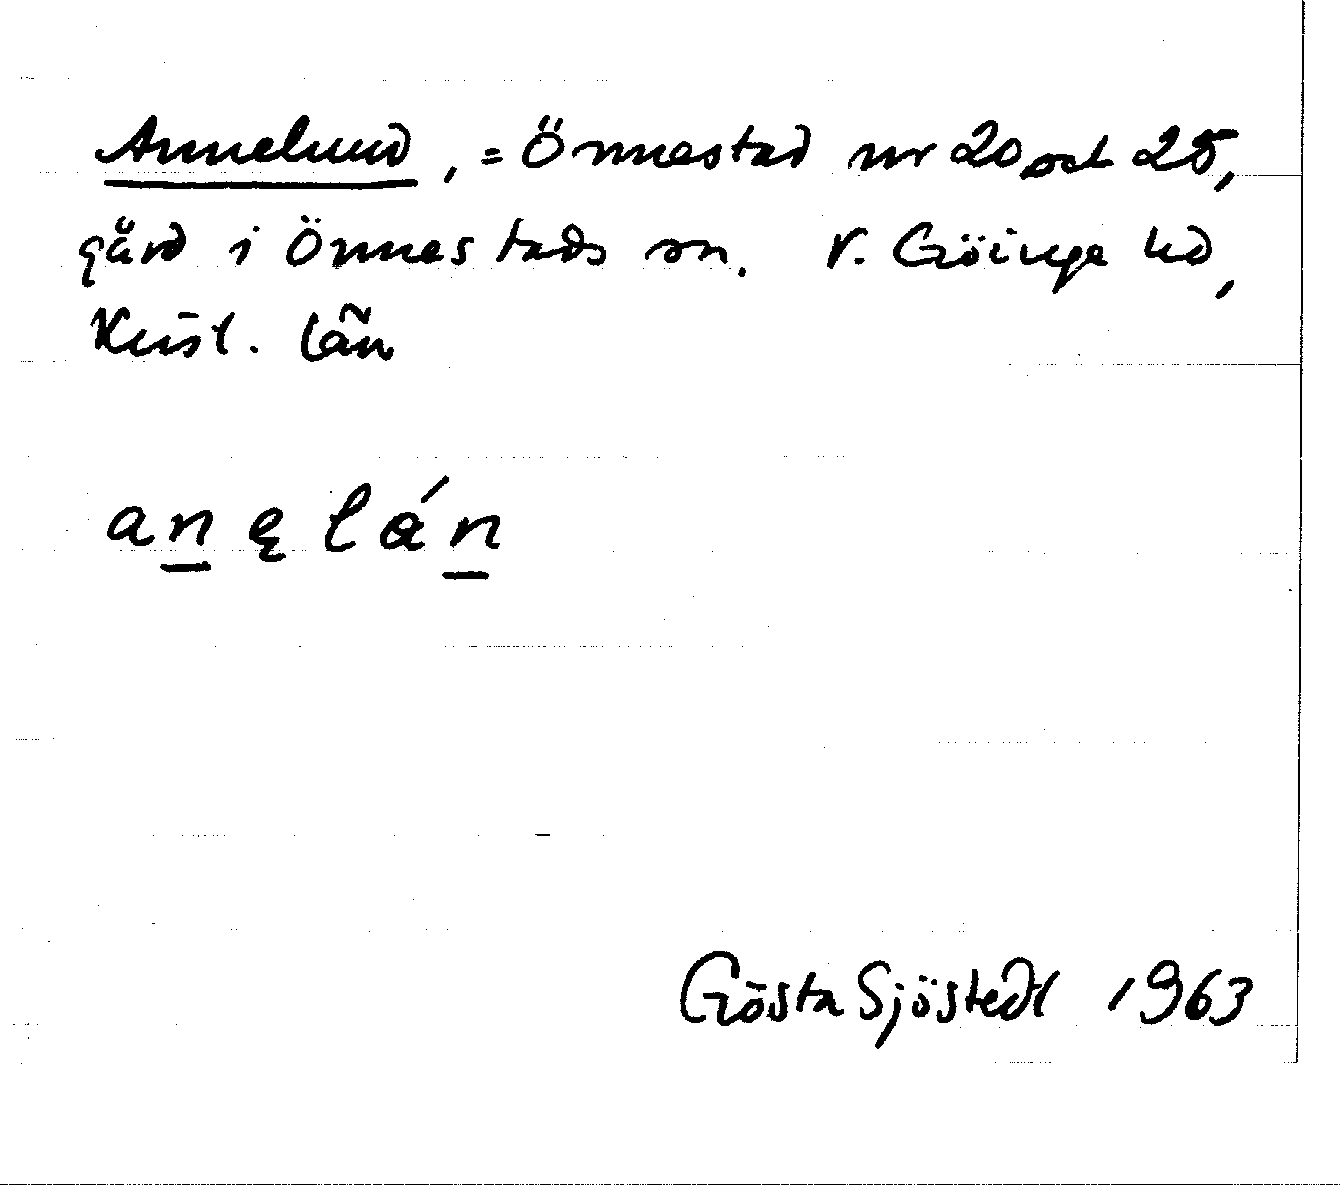 Annelund, = Önnestad nr 20 och 25,
gård i Önnestads sn. V. Göinge hd,
Krist. län
an̲ęlán̲
Gösta Sjöstedt 1963